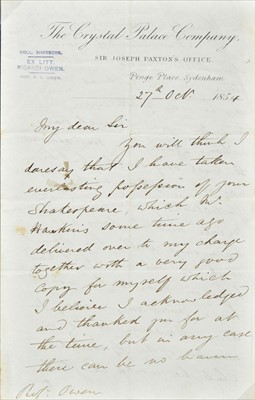 The Crystal Palace Company.
SIR JOSEPH PAXTON'S OFFICE
Penge Place, Sydenham
COLL. SHERBORN.
EX LITT.
RICHARD OWEN.
27th Oct 1854
My dear Sir
You will think I
daresay that I have taken
everlasting possession of your
Shakespeare, which Mr.
Hawkins some time ago
delivered over to my charge
together with a very good
copy for myself which
I believe I acknowledged
and thanked you for at
the time, but in any case
there can be no harm
Owen